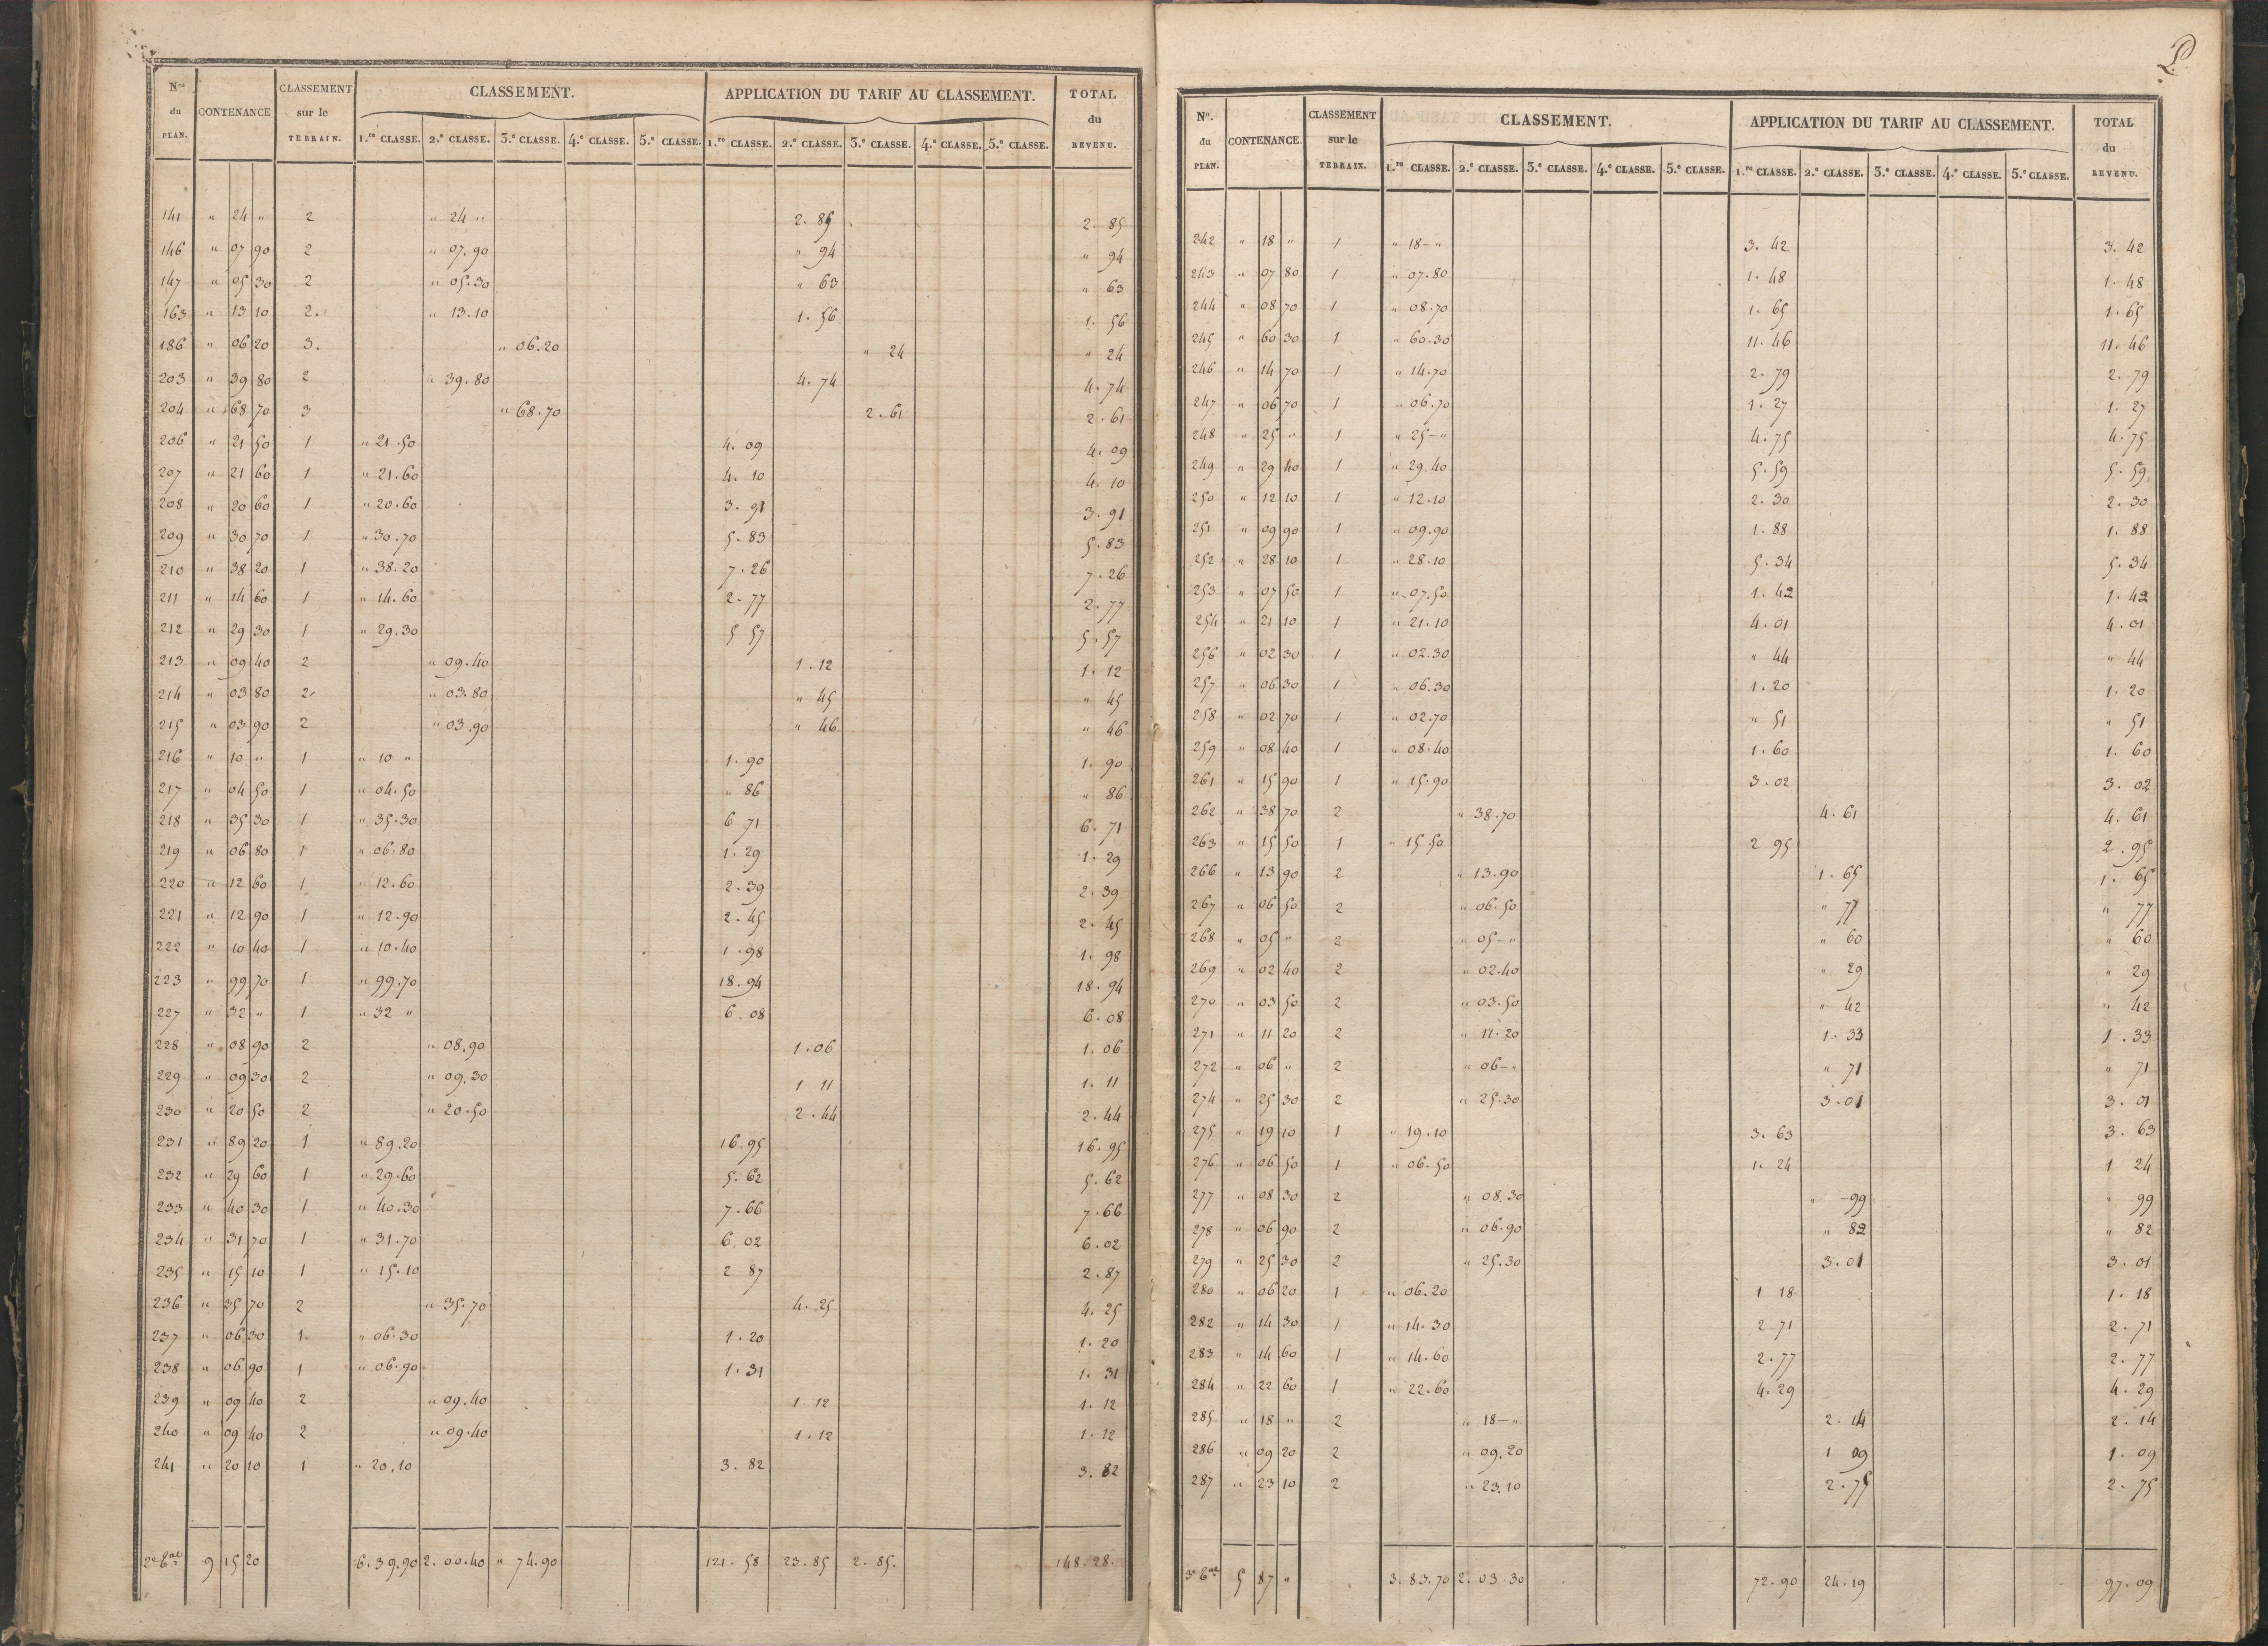 Nos du PLAN. CONTENANCE CLASSEMENT sur le TERRAIN. CLASSEMENT. APPLICATION DU TARIF AU CLASSEMENT. TOTAL du REVENU.
1.re CLASSE. 2.e CLASSE. 3.e CLASSE. 4.e CLASSE. 5.e CLASSE. 1.re CLASSE. 2.e CLASSE. 3.e CLASSE. 4.e CLASSE. 5.e CLASSE.
141 " 24 " 2 " 24 " 2. 85 2. 85
146 " 07 90 2 " 07.90 " 94 " 94
147 " 05 30 2 " 05.30 " 63 " 63
163 " 13 10 2. " 13.10 1. 56 1. 56
186 " 06 20 3. " 06.20 " 24 " 24
203 " 39 80 2 " 39.80 4. 74 4. 74
204 " 68 70 3 " 68.70 2. 61 2. 61
206 " 21 50 1 " 21.50 4. 09 4. 09
207 " 21 60 1 " 21.60 4. 10 4. 10
208 " 20 60 1 " 20.60 3. 91 3. 91
209 " 30 70 1 " 30.70 5. 83 5. 83
210 " 38 20 1 " 38.20 7. 26 7. 26
211 " 14 60 1 " 14.60 2. 77 2. 77
212 " 29 30 1 " 29.30 5 57 5. 57
213 " 09 40 2 " 09.40 1. 12 1. 12
214 " 03 80 2 " 03.80 " 45 " 45
215 " 03 90 2 " 03.90 " 46 " 46
216 " 10 " 1 " 10 " 1. 90 1. 90
217 " 04 50 1 " 04.50 " 86 " 86
218 " 35 30 1 " 35.30 6 71 6. 71
219 " 06 80 1 " 06.80 1. 29 1. 29
220 " 12 60 1 " 12.60 2. 39 2. 39
221 " 12 90 1 " 12.90 2. 45 2. 45
222 " 10 40 1 " 10.40 1. 98 1. 98
223 " 99 70 1 " 99.70 18. 94 18. 94
227 " 32 " 1 " 32 " 6. 08 6. 08
228 " 08 90 2 " 08.90 1. 06 1. 06
229 " 09 30 2 " 09.30 1 11 1. 11
230 " 20 50 2 " 20.50 2. 44 2. 44
231 " 89 20 1 " 89.20 16. 95 16. 95
232 " 29 60 1 " 29.60 5. 62 5. 62
233 " 40 30 1 " 40.30 7. 66 7. 66
234 " 31 70 1 " 31.70 6. 02 6. 02
235 " 15 10 1 " 15.10 2 87 2. 87
236 " 35 70 2 " 35.70 4. 25 4. 25
237 " 06 30 1. " 06.30 1. 20 1. 20
238 " 06 90 1 " 06.90 1. 31 1. 31
239 " 09 40 2 " 09.40 1. 12 1. 12
240 " 09 40 2 " 09.40 1. 12 1. 12
241 " 20 10 1 " 20.10 3. 82 3. 82
9 15 20 6.39.90 2.00.40 " 74.90 121. 58 23. 85 2. 85. 148. 28.
No. du PLAN. CONTENANCE. CLASSEMENT sur le TERRAIN. CLASSEMENT. APPLICATION DU TARIF AU CLASSEMENT. TOTAL du REVENU.
1.re CLASSE. 2.e CLASSE. 3.e CLASSE. 4.e CLASSE. 5.e CLASSE. 1.re CLASSE. 2.e CLASSE. 3.e CLASSE. 4.e CLASSE. 5.e CLASSE.
342 " 18 " 1 " 18 - " 3. 42 3. 42
243 " 07 80 1 " 07.80 1. 48 1. 48
244 " 08 70 1 " 08.70 1. 65 1. 65
245 " 60 30 1 " 60.30 11. 46 11. 46
246 " 14 70 1 " 14.70 2. 79 2. 79
247 " 06 70 1 " 06.70 1. 27 1. 27
248 " 25 " 1 " 25 - " 4. 75 4. 75
249 " 29 40 1 " 29.40 5. 59 5. 59
250 " 12 10 1 " 12.10 2. 30 2. 30
251 " 09 90 1 " 09.90 1. 88 1. 88
252 " 28 10 1 " 28.10 5. 34 5. 34
253 " 07 50 1 " 07.50 1. 42 1. 42
254 " 21 10 1 " 21.10 4. 01 4. 01
256 " 02 30 1 " 02.30 " 44 " 44
257 " 06 30 1 " 06.30 1. 20 1. 20
258 " 02 70 1 " 02.70 " 51 " 51
259 " 08 40 1 " 08.40 1. 60 1. 60
261 " 15 90 1 " 15.90 3. 02 3. 02
262 " 38 70 2 " 38.70 4. 61 4. 61
263 " 15 50 1 " 15.50 2 95 2. 95
266 " 13 90 2 " 13.90 1. 65 1. 65
267 " 06 50 2 " 06.50 " 77 " 77
268 " 05 " 2 " 05 - " " 60 " 60
269 " 02 40 2 " 02.40 " 29 " 29
270 " 03 50 2 " 03.50 " 42 " 42
271 " 11 20 2 " 11.20 1. 33 1. 33
272 " 06 " 2 " 06 - " " 71 " 71
274 " 25 30 2 " 25.30 3. 01 3. 01
275 " 19 10 1 " 19.10 3. 63 3. 63
276 " 06 50 1 " 06.50 1. 24 1 24
277 " 08 30 2 " 08.30 " 99 " 99
278 " 06 90 2 " 06.90 " 82 " 82
279 " 25 30 2 " 25.30 3. 01 3. 01
280 " 06 20 1 " 06.20 1 18 1. 18
282 " 14 30 1 " 14.30 2 71 2. 71
283 " 14 60 1 " 14.60 2. 77 2. 77
284 " 22 60 1 " 22.60 4. 29 4. 29
285 " 18 " 2 " 18 - " 2. 14 2. 14
286 " 09 20 2 " 09.20 1 09 1. 09
287 " 23 10 2 " 23.10 2. 75 2. 75
5 87 " 3.83.70 2.03.30 72. 90 24. 19 97. 09